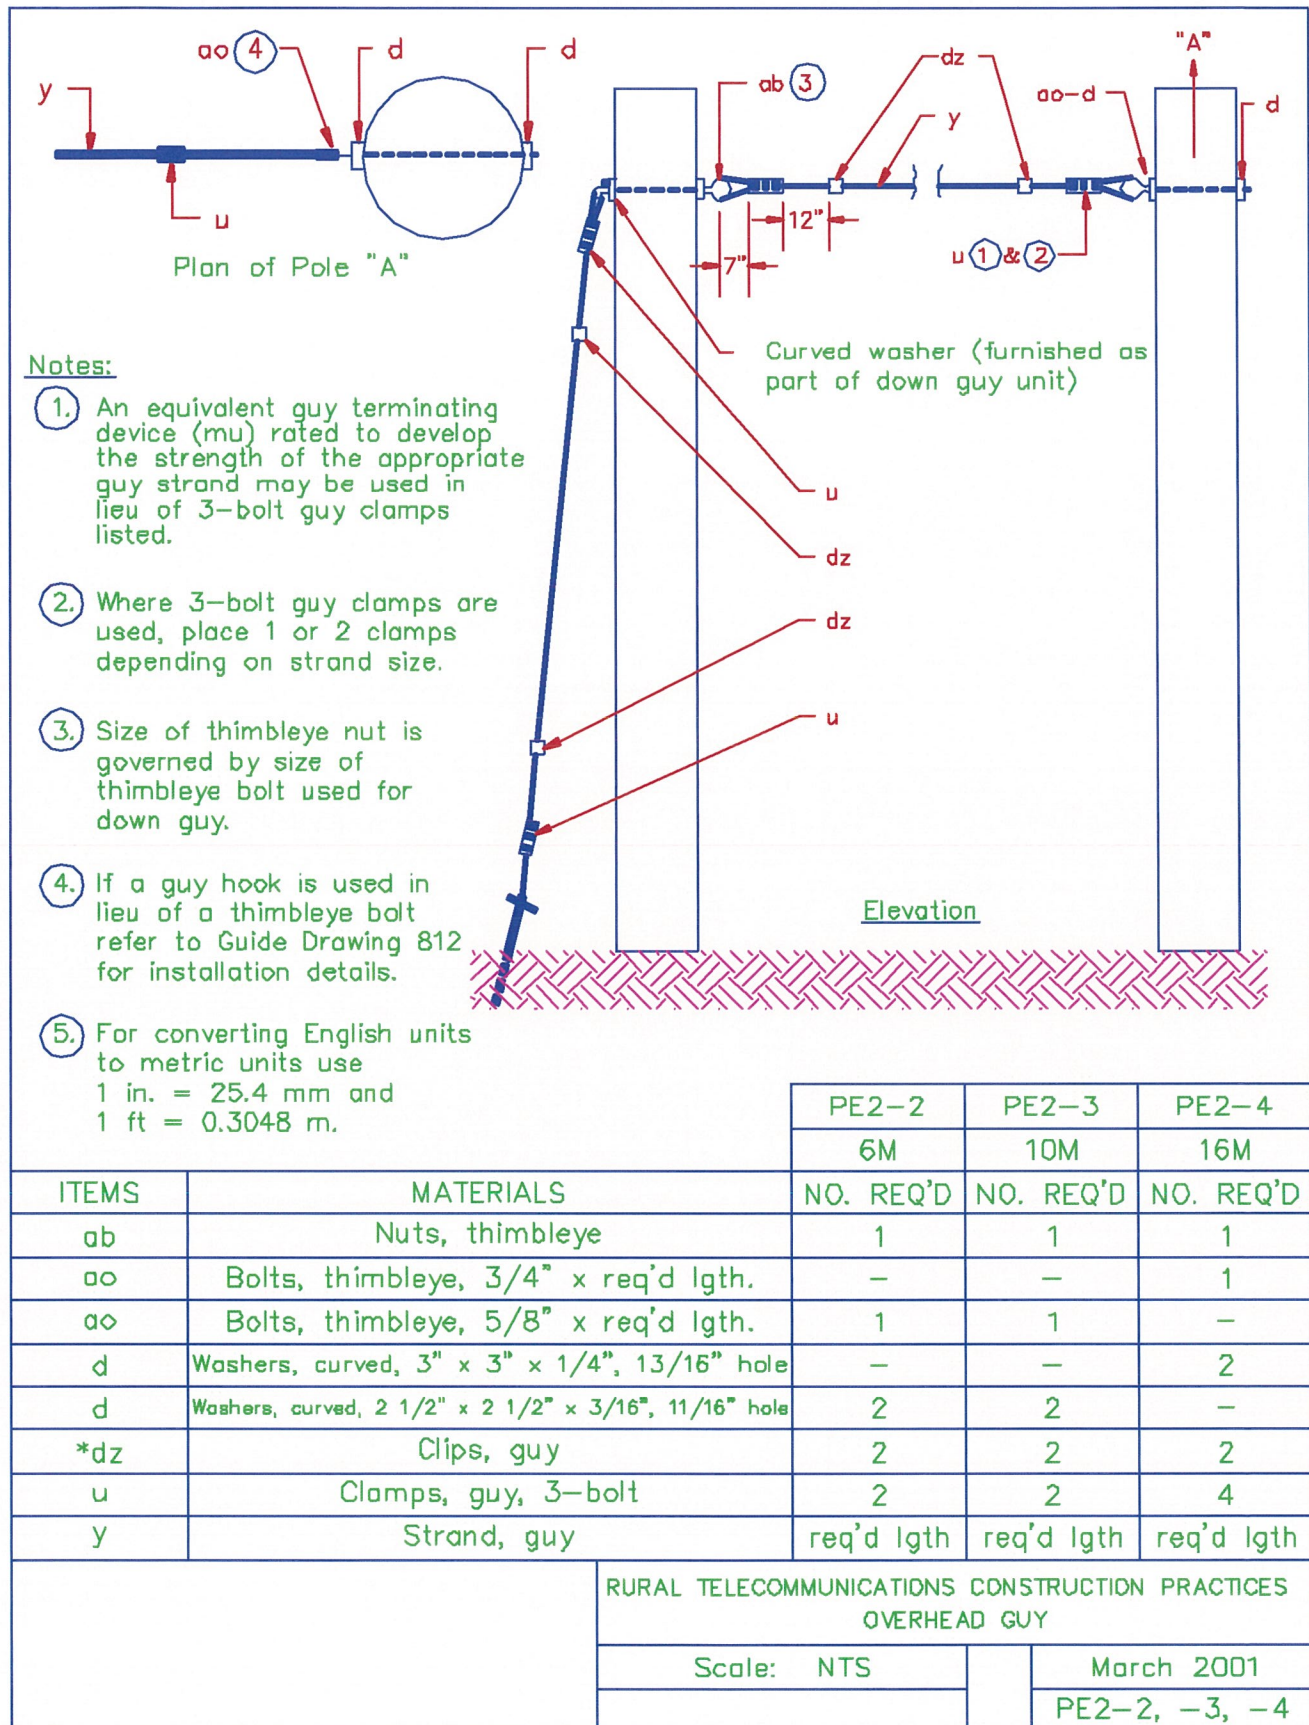 ao 4
d
d
y
u
Plan of Pole "A"
ab 3
dz
y
ao-d
"A"
d
12"
7"
u 1 & 2
Curved washer (furnished as
part of down guy unit)
u
dz
dz
u
Elevation
Notes:
1. An equivalent guy terminating
device (mu) rated to develop
the strength of the appropriate
guy strand may be used in
lieu of 3-bolt guy clamps
listed.
2. Where 3-bolt guy clamps are
used, place 1 or 2 clamps
depending on strand size.
3. Size of thimbleye nut is
governed by size of
thimbleye bolt used for
down guy.
4. If a guy hook is used in
lieu of a thimbleye bolt
refer to Guide Drawing 812
for installation details.
5. For converting English units
to metric units use
1 in. = 25.4 mm and
1 ft = 0.3048 m.
PE2-2 PE2-3 PE2-4
6M 10M 16M
ITEMS MATERIALS NO. REQ'D NO. REQ'D NO. REQ'D
ab Nuts, thimbleye 1 1 1
ao Bolts, thimbleye, 3/4" x req'd lgth. - - 1
ao Bolts, thimbleye, 5/8" x req'd lgth. 1 1 -
d Washers, curved, 3" x 3" x 1/4", 13/16" hole - - 2
d Washers, curved, 2 1/2" x 2 1/2" x 3/16", 11/16" hole 2 2 -
*dz Clips, guy 2 2 2
u Clamps, guy, 3-bolt 2 2 4
y Strand, guy req'd lgth req'd lgth req'd lgth
RURAL TELECOMMUNICATIONS CONSTRUCTION PRACTICES
OVERHEAD GUY
Scale: NTS March 2001
PE2-2, -3, -4